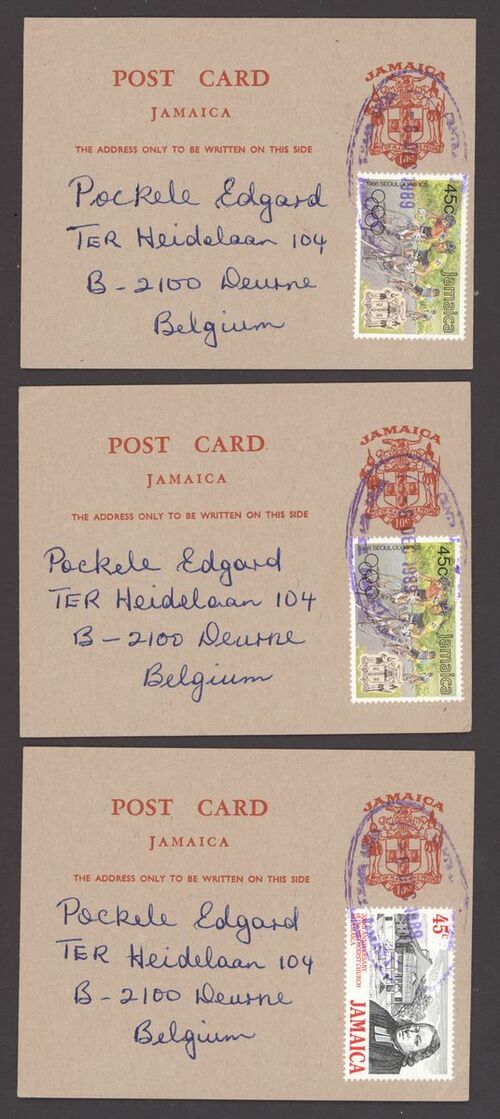 POST CARD
JAMAICA
THE ADDRESS ONLY TO BE WRITTEN ON THIS SIDE
JAMAICA
10c
1988 SEOUL OLYMPICS
45c
Jamaica
Pockele Edgard
TER Heidelaan 104
B-2100 Deurne
Belgium
POST CARD
JAMAICA
THE ADDRESS ONLY TO BE WRITTEN ON THIS SIDE
JAMAICA
10c
1988 SEOUL OLYMPICS
45c
Jamaica
Pockele Edgard
TER Heidelaan 104
B-2100 Deurne
Belgium
POST CARD
JAMAICA
THE ADDRESS ONLY TO BE WRITTEN ON THIS SIDE
JAMAICA
10c
45c
JAMAICA
Pockele Edgard
TER Heidelaan 104
B-2100 Deurne
Belgium